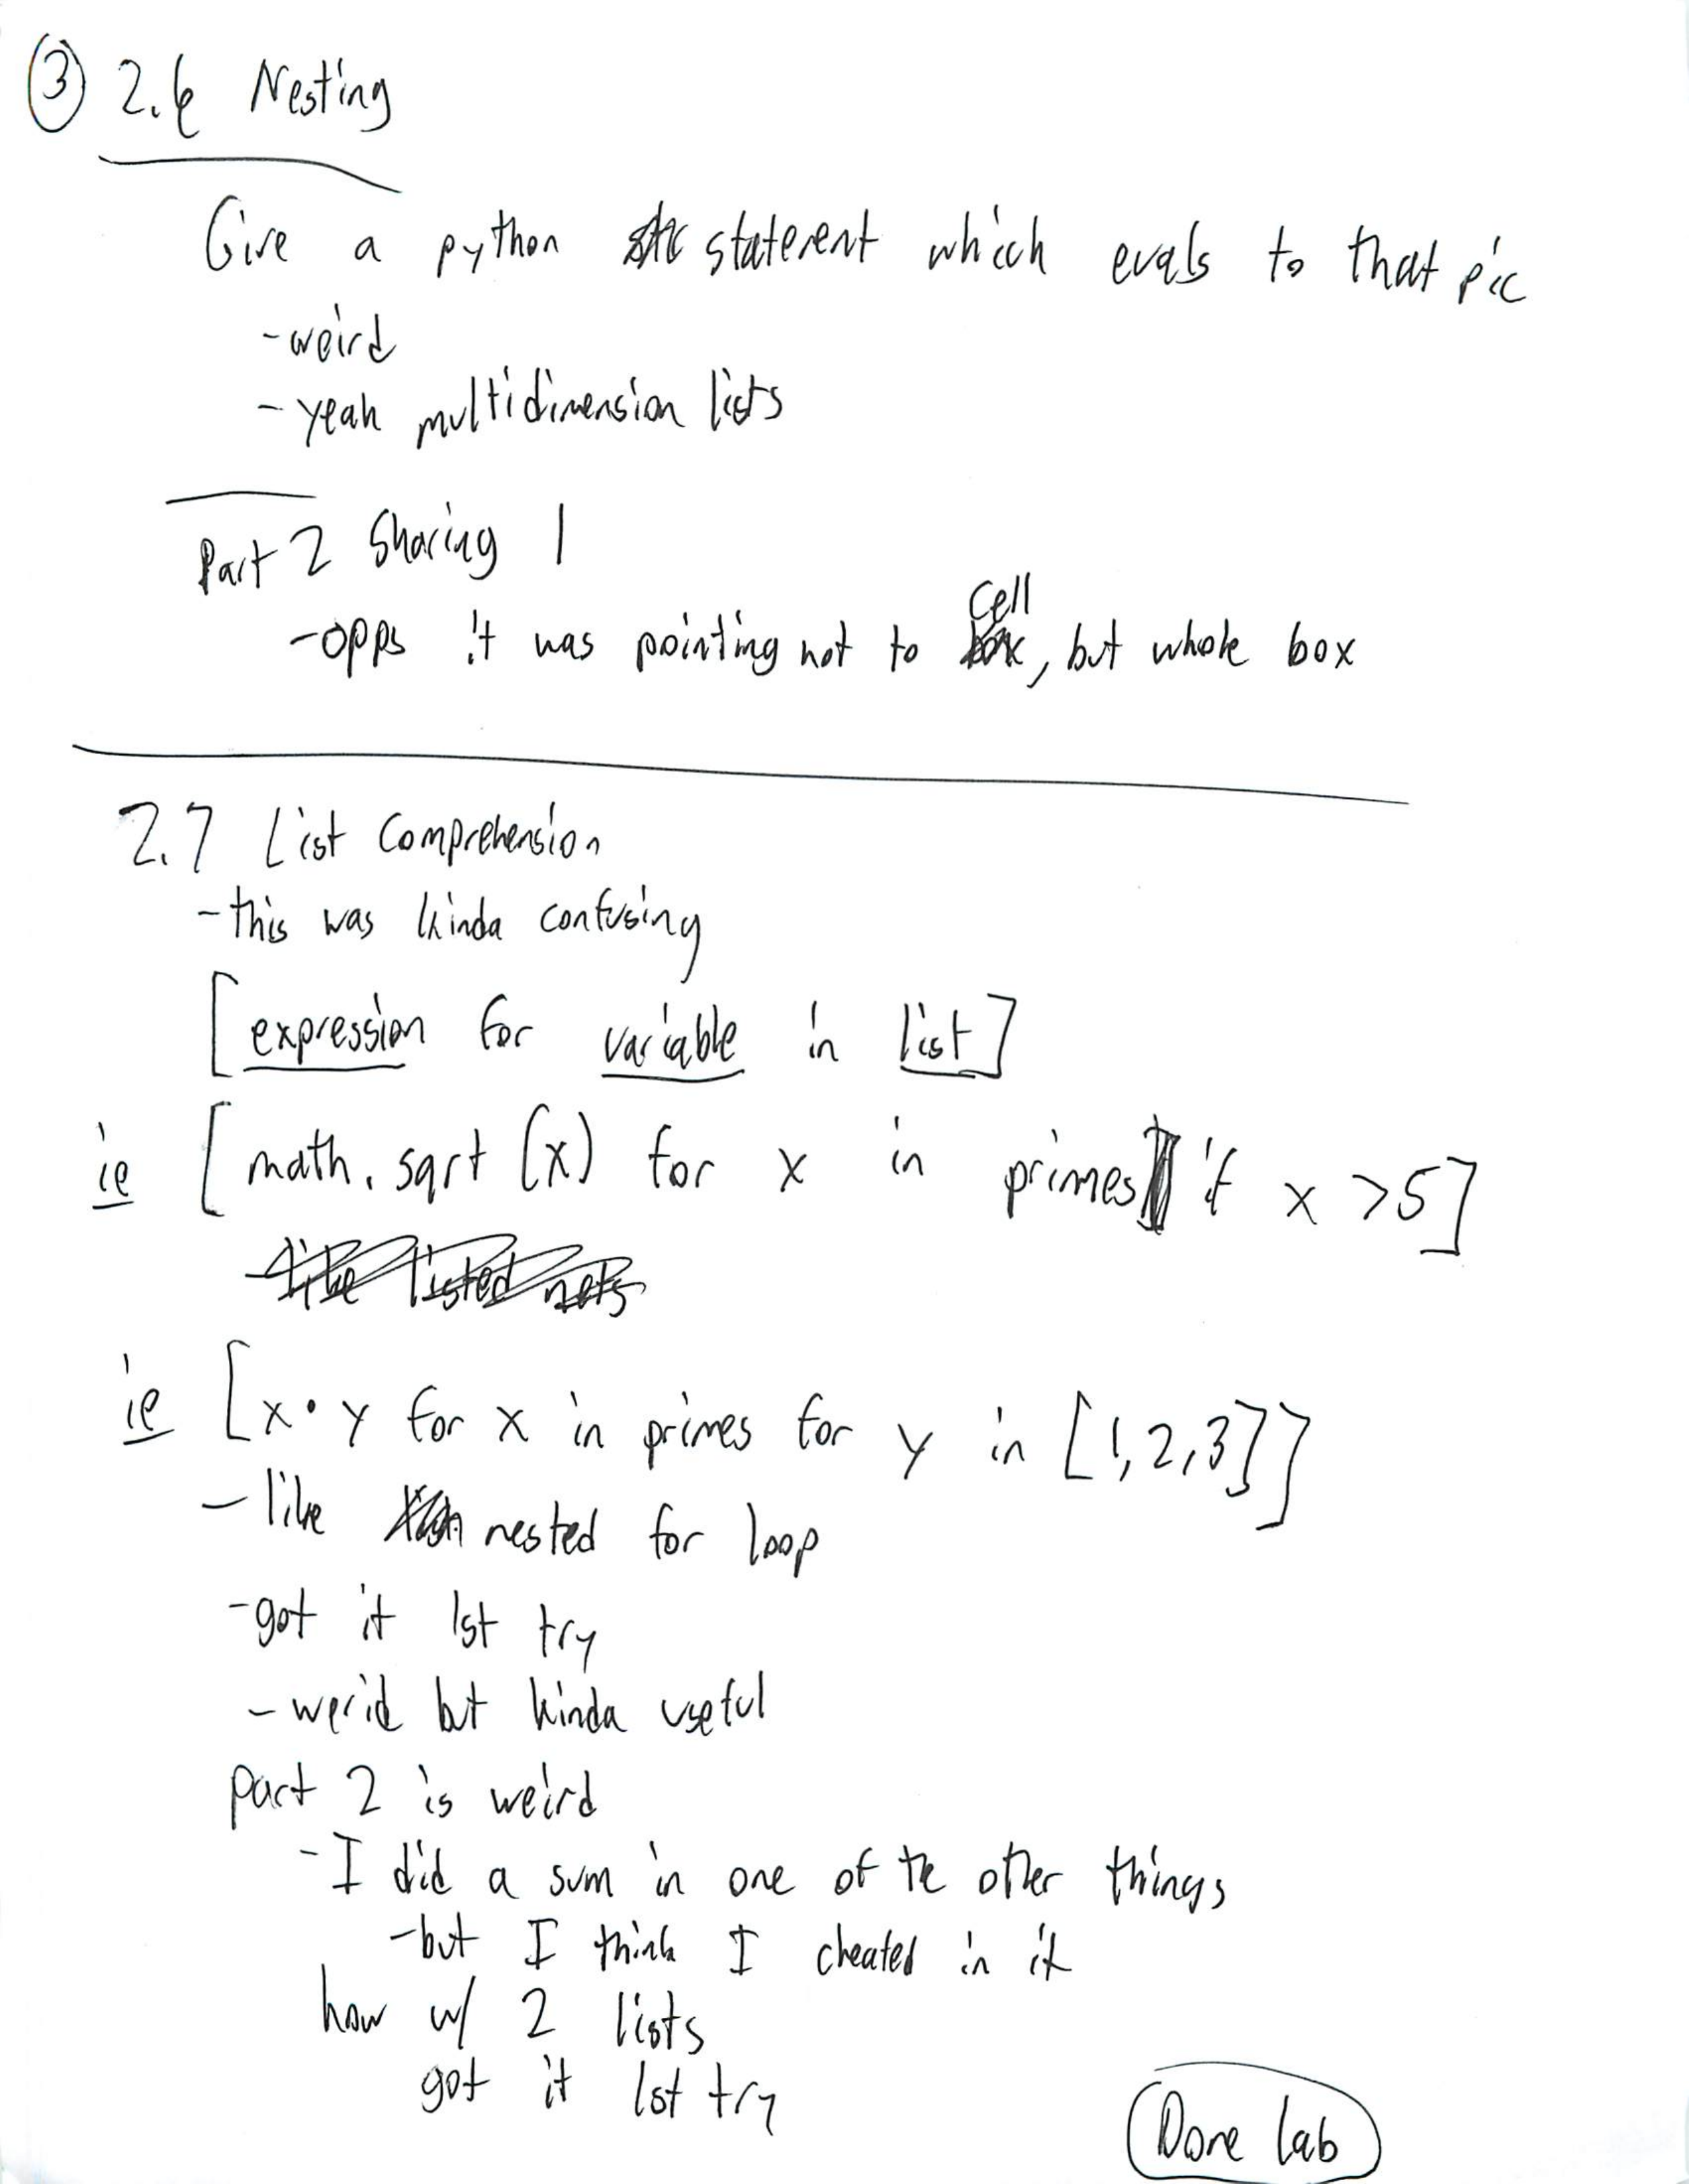 ③ 2.6 Nesting
Give a python statement which evals to that pic
-weird
-yeah multidimension lists
Part 2 Sharing 1
-opps it was pointing not to cell, but whole box
2.7 List Comprehension
-this was kinda confusing
[expression for variable in list]
ie [math.sqrt(x) for x in primes if x >5]
ie [x•y for x in primes for y in [1,2,3]]
-like nested for loop
-got it 1st try
-werid but kinda useful
part 2 is weird
-I did a sum in one of the other things
-but I think I cheated in it
how w/ 2 lists
got it 1st try
Done lab